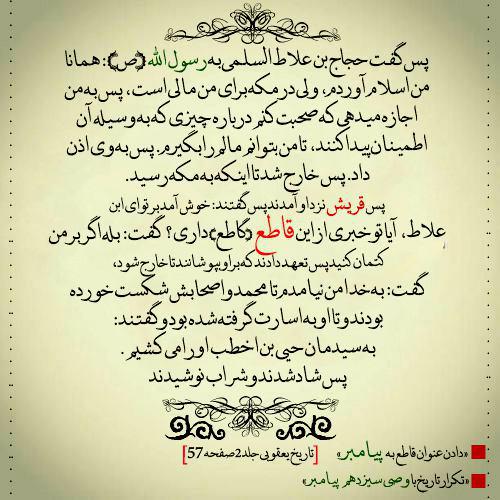 پس گفت حجاج بن علاط السلمی به رسول الله (ص): همانا
من اسلام آوردم، ولی در مکه برای من مالی است، پس به من
اجازه میدهی که صحبت کنم درباره چیزی که به وسیله آن
اطمینان پیدا کنند، تا من بتوانم مالم را بگیرم. پس به وی اذن
داد. پس خارج شد تا اینکه به مکه رسید.
پس قریش نزد او آمدند پس گفتند: خوش آمد بر تو ای ابن
علاط، آیا تو خبری از این قاطع (قاطع) داری؟ گفت: بله اگر بر من
کتمان کنید پس تعهد دادند که بر او بپوشانند تا خارج شود،
گفت: به خدا من نیامدم تا محمد و اصحابش شکست خورده
بودند و تا او به اسارت گرفته شده بود و گفتند:
به سیدمان حیی بن اخطب او را می کشیم.
پس شاد شدند و شراب نوشیدند
«دادن عنوان قاطع به پیامبر» [تاریخ یعقوبی جلد2صفحه57]
«تکرار تاریخ با وصی سیزدهم پیامبر»